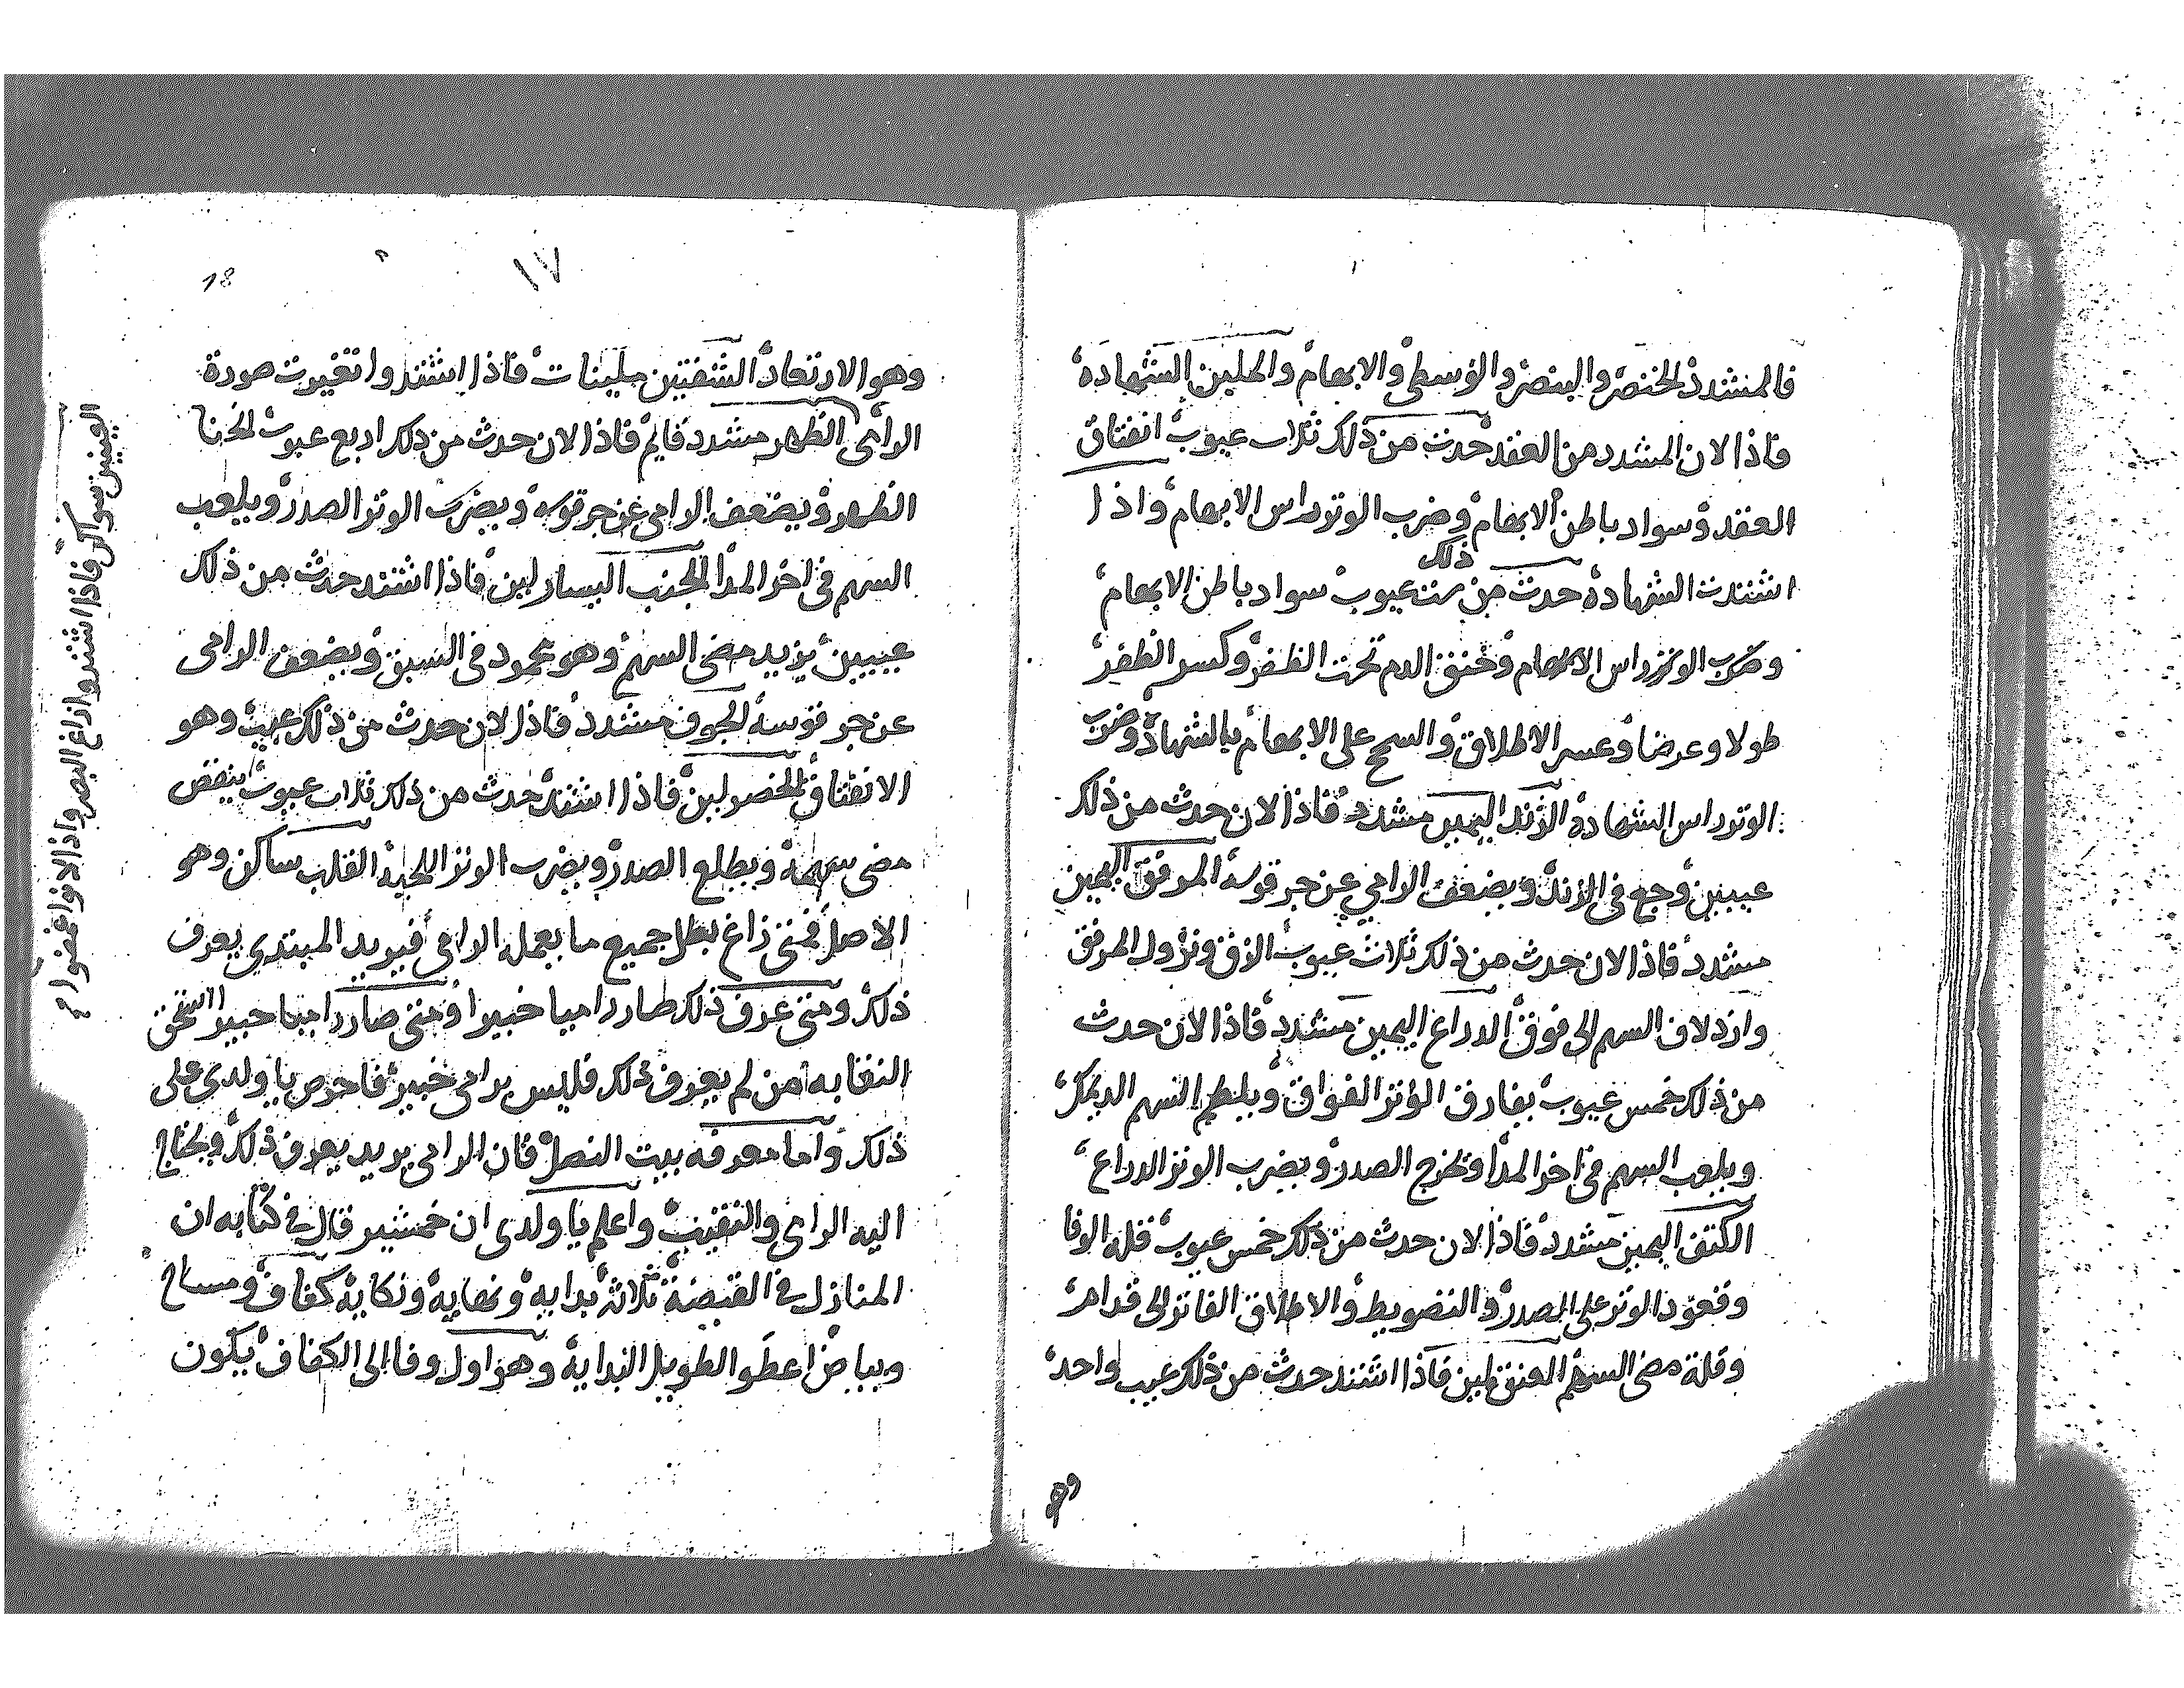 فالمنشدد الخنصر والبنصر والوسطى والابهام والملين الشهاده
فاذا لان المشدد من العقد حدث من ذلك ثلاث عيوب انفتاق
العقد وسواد باطن الابهام وضرب الوتر راس الابهام واذا
اشتدت الشهادة حدث من ذلك ست عيوب سواد باطن الابهام
وضرب الوتر راس الابهام وخنق الدم تحت الظفر وكسر الظفر
طولا وعرضا وعسر الاطلاق والسحج على الابهام بالشهادة وضرب
الوتر راس الشهادة الزند اليمين مشدد فاذا لان حدث من ذلك
عيبين وجع في الزند ويضعف الرامي عن جر قوسه المرفق اليمين
مشدد فاذا لان حدث من ذلك ثلاث عيوب الزق ونزول المرفق
وازدلاف السهم الى فوق الدراع اليمين مشدد فاذا لان حدث
من ذلك خمس عيوب يفارق الوتر الفواق ويلطم السهم الديمك
ويلعب السهم في اخر المدا ويخرج الصدر ويضرب الوتر الدراع
الكتف اليمين مشدد فاذا لان حدث من ذلك خمس عيوب قله الوفا
وقعود الوتر على الصدر والتضويط والاطلاق الفاتر الى قدام
وقلة مضى السهم العنق لين فاذا اشتد حدث من ذلك عيب واحد
وهو
١٧
18
وهو الارتعاد الشفتين ملينات فاذا اشتدوا تغيرت صورة
الرامى الظهر مشدد قايم فاذا لان حدث من ذلك اربع عيوب انحنا
الظهر ويضعف الرامى عن جر قوسه ويضرب الوتر الصدر ويلعب
السهم في اخر المدا الجنب اليسار لين فاذا اشتد حدث من ذلك
عيبين يزيد مضى السهم وهو محمود في السبق ويضعف الرامى
عن جر قوسه الجوف مشدد فاذا لان حدث من ذلك عيب وهو
الانفتاق الخصر لين فاذا اشتد حدث من ذلك ثلاث عيوب ينقض
مضى سهمه ويطلع الصدر ويضرب الوتر اللحية القلب ساكن وهو
الاصل فمتى زاغ بطل جميع ما يعمله الرامى فيريد المبتدي يعرف
ذلك ومتى عرف ذلك صار راميا خبيرا ومتى صار راميا خبيرا استحق
النقابه من لم يعرف ذلك فليس برامى خبير فاحرص يا ولدي على
ذلك واما معرفه بيت النصل فان الرامى يريد يعرف ذلك ويحتاج
اليه الرامى والنقيب واعلم يا ولدى ان خمشنير قال في كتابه ان
المنازل في القبضة ثلاثة بدايه ونهايه ونكاية كفاف ومساح
وبياض اعطو الطويل البداية وهو اول وفا الى الكفاف يكون
العينين سواكن فاذا اشتدوا زاغ البصر واذا لانوا غمضوا